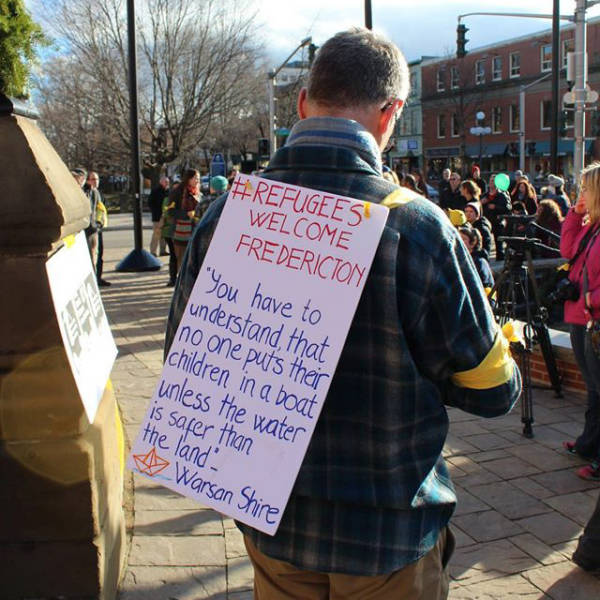 #REFUGEES
WELCOME
FREDERICTON
"You have to
understand, that
no one puts their
children in a boat
unless the water
is safer than
the land" -
Warsan Shire